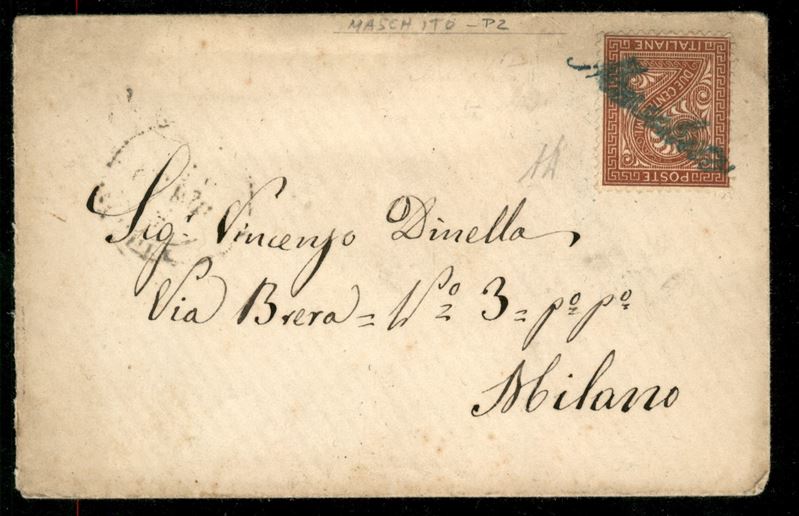 MASCHITO - P2
POSTE ITALIANE
DUE CENTESIMI
Sig.r Vincenzo Dinella
Via Brera = N.o 3 = p.o p.o
Milano